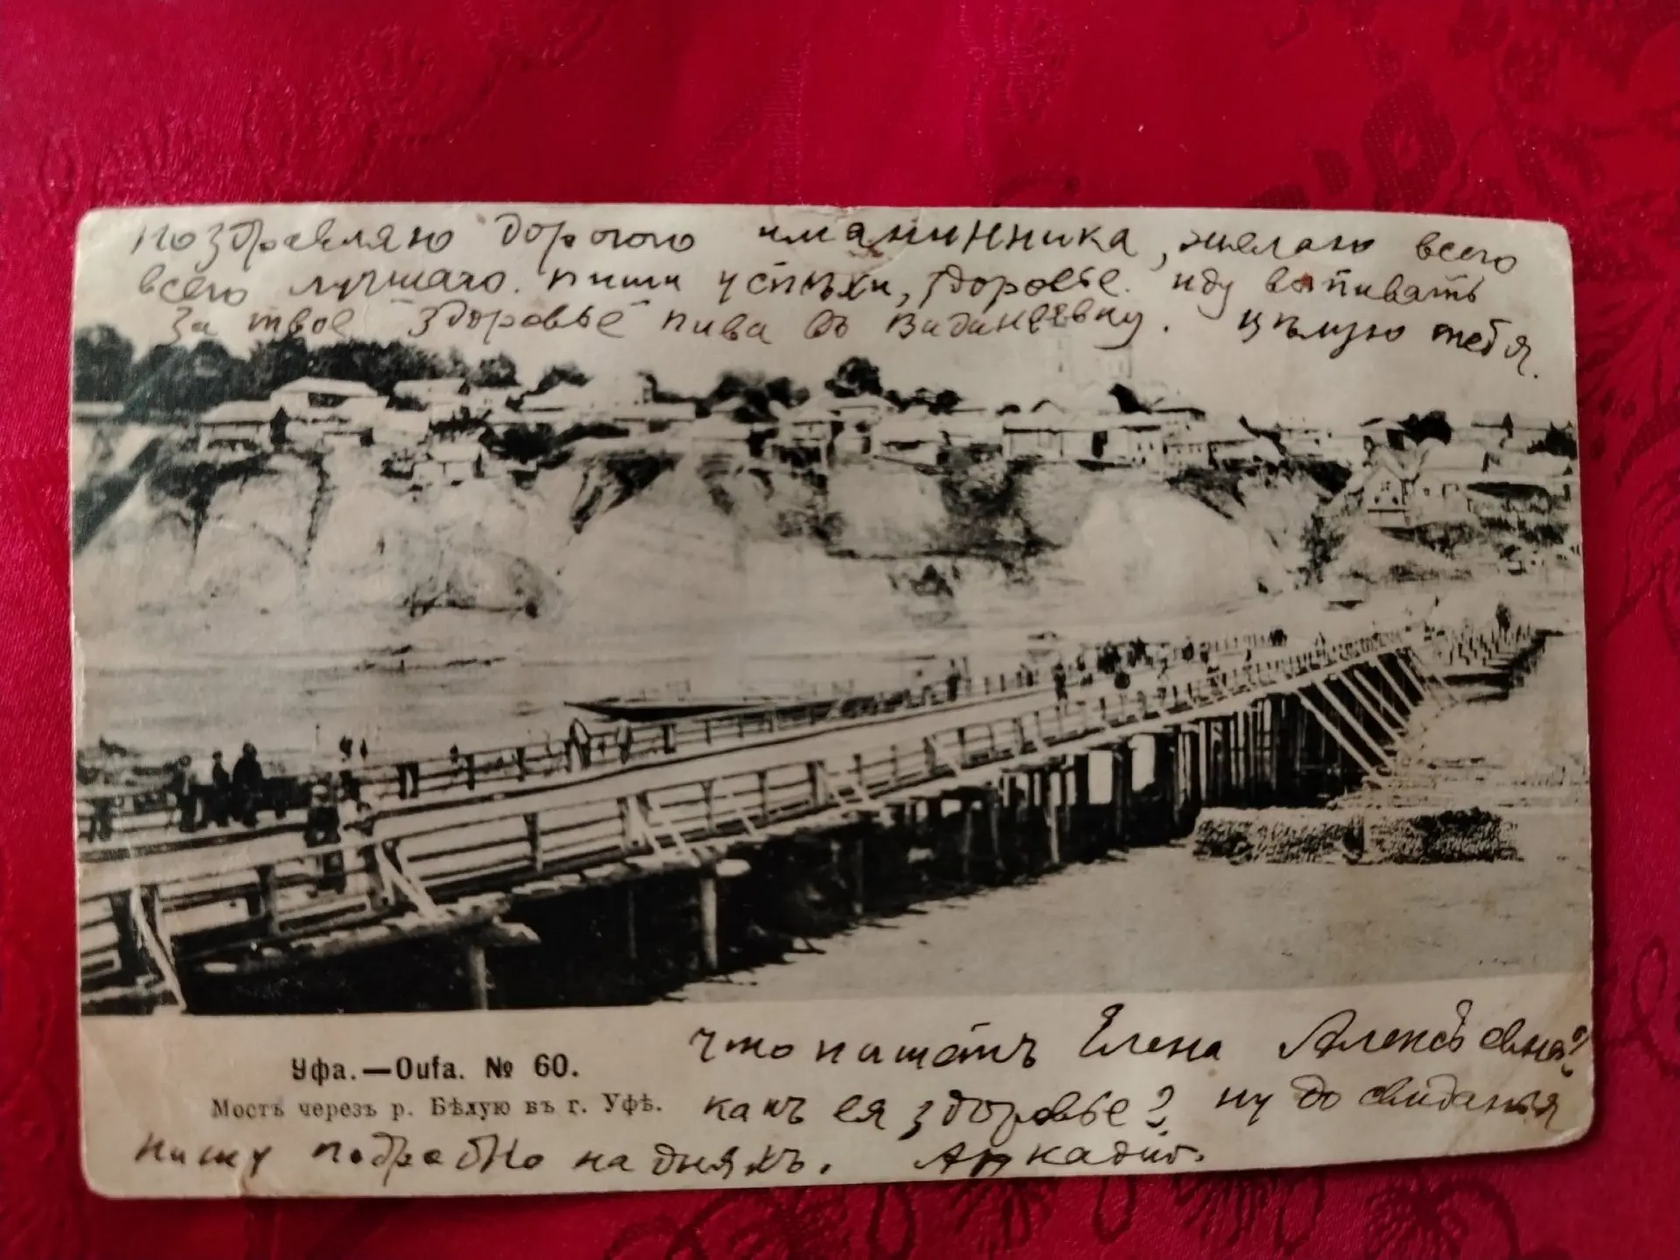 Поздравляю дорогого имянинника, желаю всего
всего лучшаго. пиши успѣхи, здоровье. иду выпивать
за твое здоровье пива въ Видинѣевку. цѣлую тебя.
Что пишетъ Елена Алексѣевна?
Уфа.—Oufa. № 60.
какъ ея здоровье? ну до свиданья
Мостъ черезъ р. Бѣлую въ г. Уфѣ.
пишу подробно на дняхъ. Аркадій.